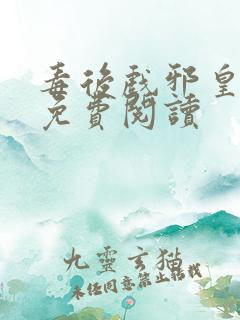 毒後戲邪皇
免費閱讀
九靈玄貓
未經同意禁止轉載